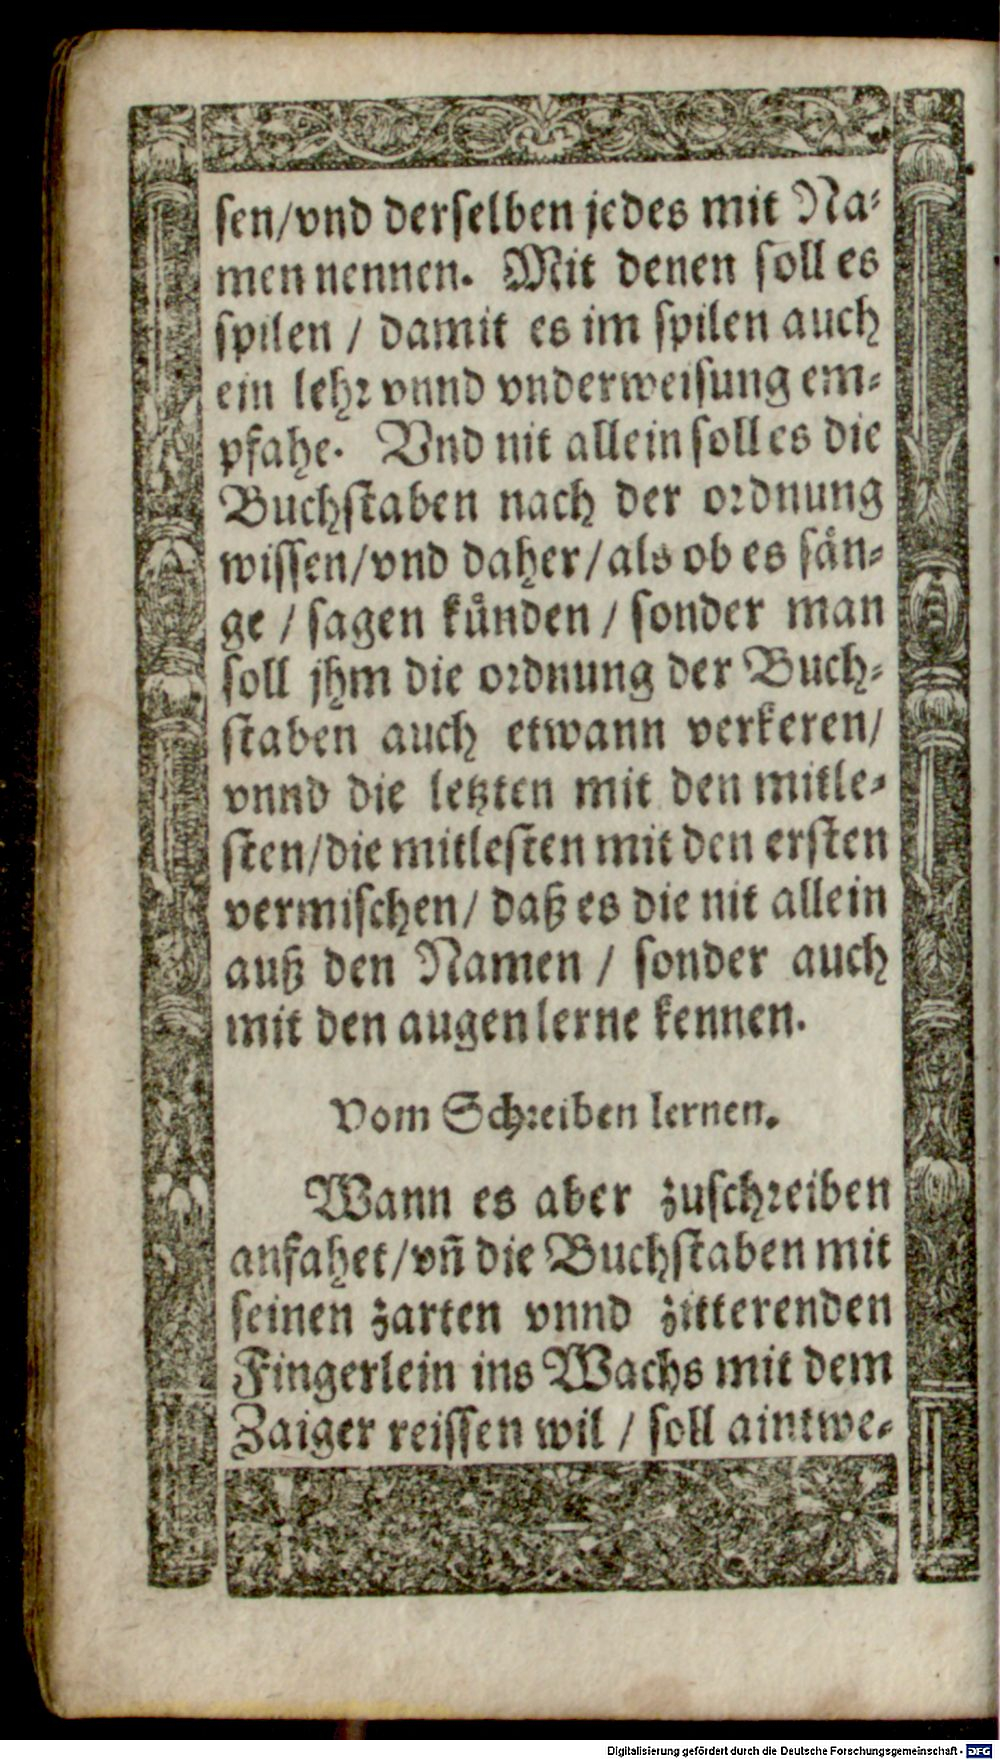 sen/vnd derselben jedes mit Na⸗
men nennen. Mit denen soll es
spilen / damit es im spilen auch
ein lehr vnnd vnderweisung em⸗
pfahe. Vnd nit allein soll es die
Buchstaben nach der ordnung
wissen/vnd daher/als ob es sän⸗
ge / sagen künden / sonder man
soll jhm die ordnung der Buch⸗
staben auch etwann verkeren/
vnnd die letzten mit den mitle⸗
sten/die mitlesten mit den ersten
vermischen/ daß es die nit allein
auß den Namen / sonder auch
mit den augen lerne kennen.
Vom Schreiben lernen.
Wann es aber zuschreiben
anfahet/vñ die Buchstaben mit
seinen zarten vnnd zitterenden
Fingerlein ins Wachs mit dem
Zaiger reissen wil / soll aintwe⸗
Digitalisierung gefördert durch die Deutsche Forschungsgemeinschaft - DFG